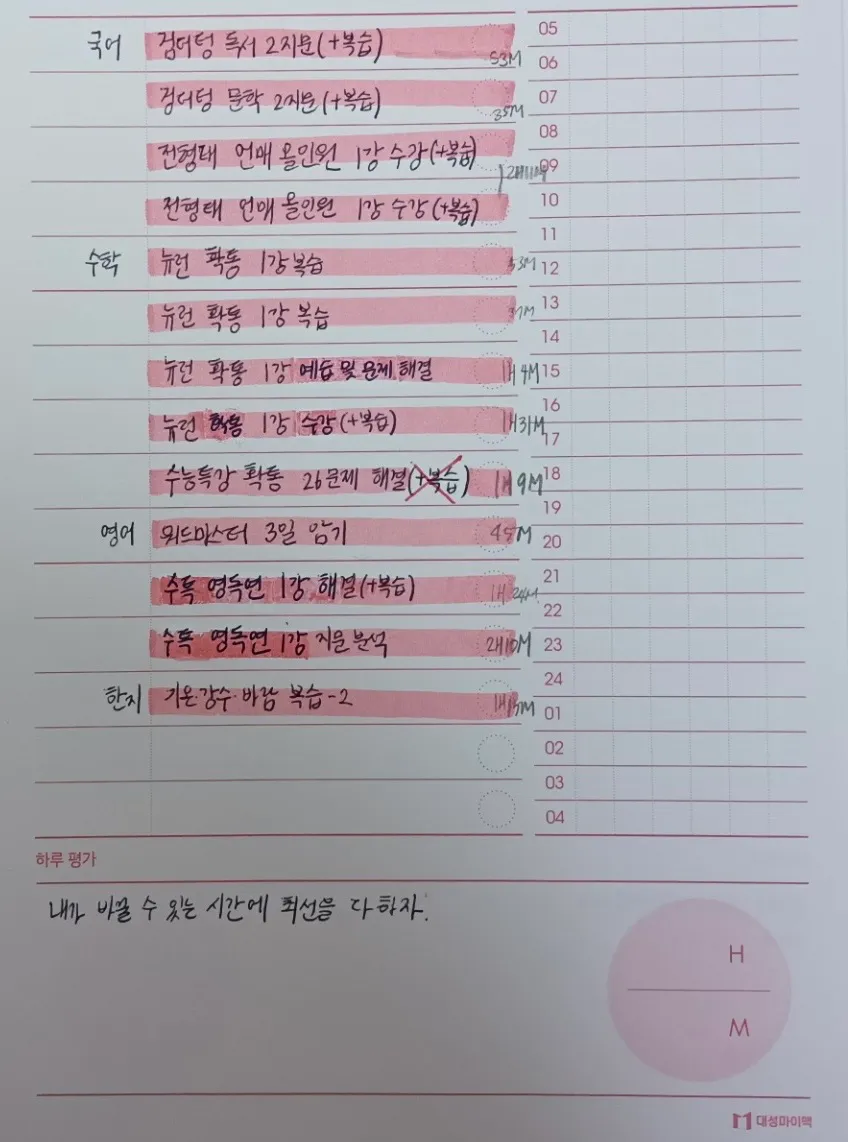 국어 검더텅 독서 2지문(+복습) 53M
검더텅 문학 2지문(+복습) 35M
전형태 언매 올인원 1강 수강(+복습)
전형태 언매 올인원 1강 수강(+복습)
수학 뉴런 확통 1강 복습 53M
뉴런 확통 1강 복습
뉴런 확통 1강 예습 및 문제 해결 1H 4M
뉴런 확통 1강 수강(+복습) 1H31M
수능특강 확통 26문제 해결(+복습) 1H 9M
영어 워드마스터 3일 암기 48M
수특 영독연 1강 해결(+복습) 1H 24M
수특 영독연 1강 지문 분석 2H10M
한지 기온·강수·바람 복습-2
05
06
07
08
09
10
11
12
13
14
15
16
17
18
19
20
21
22
23
24
01
02
03
04
하루 평가
내가 바꿀 수 있는 시간에 최선을 다하자.
H
M
대성마이맥